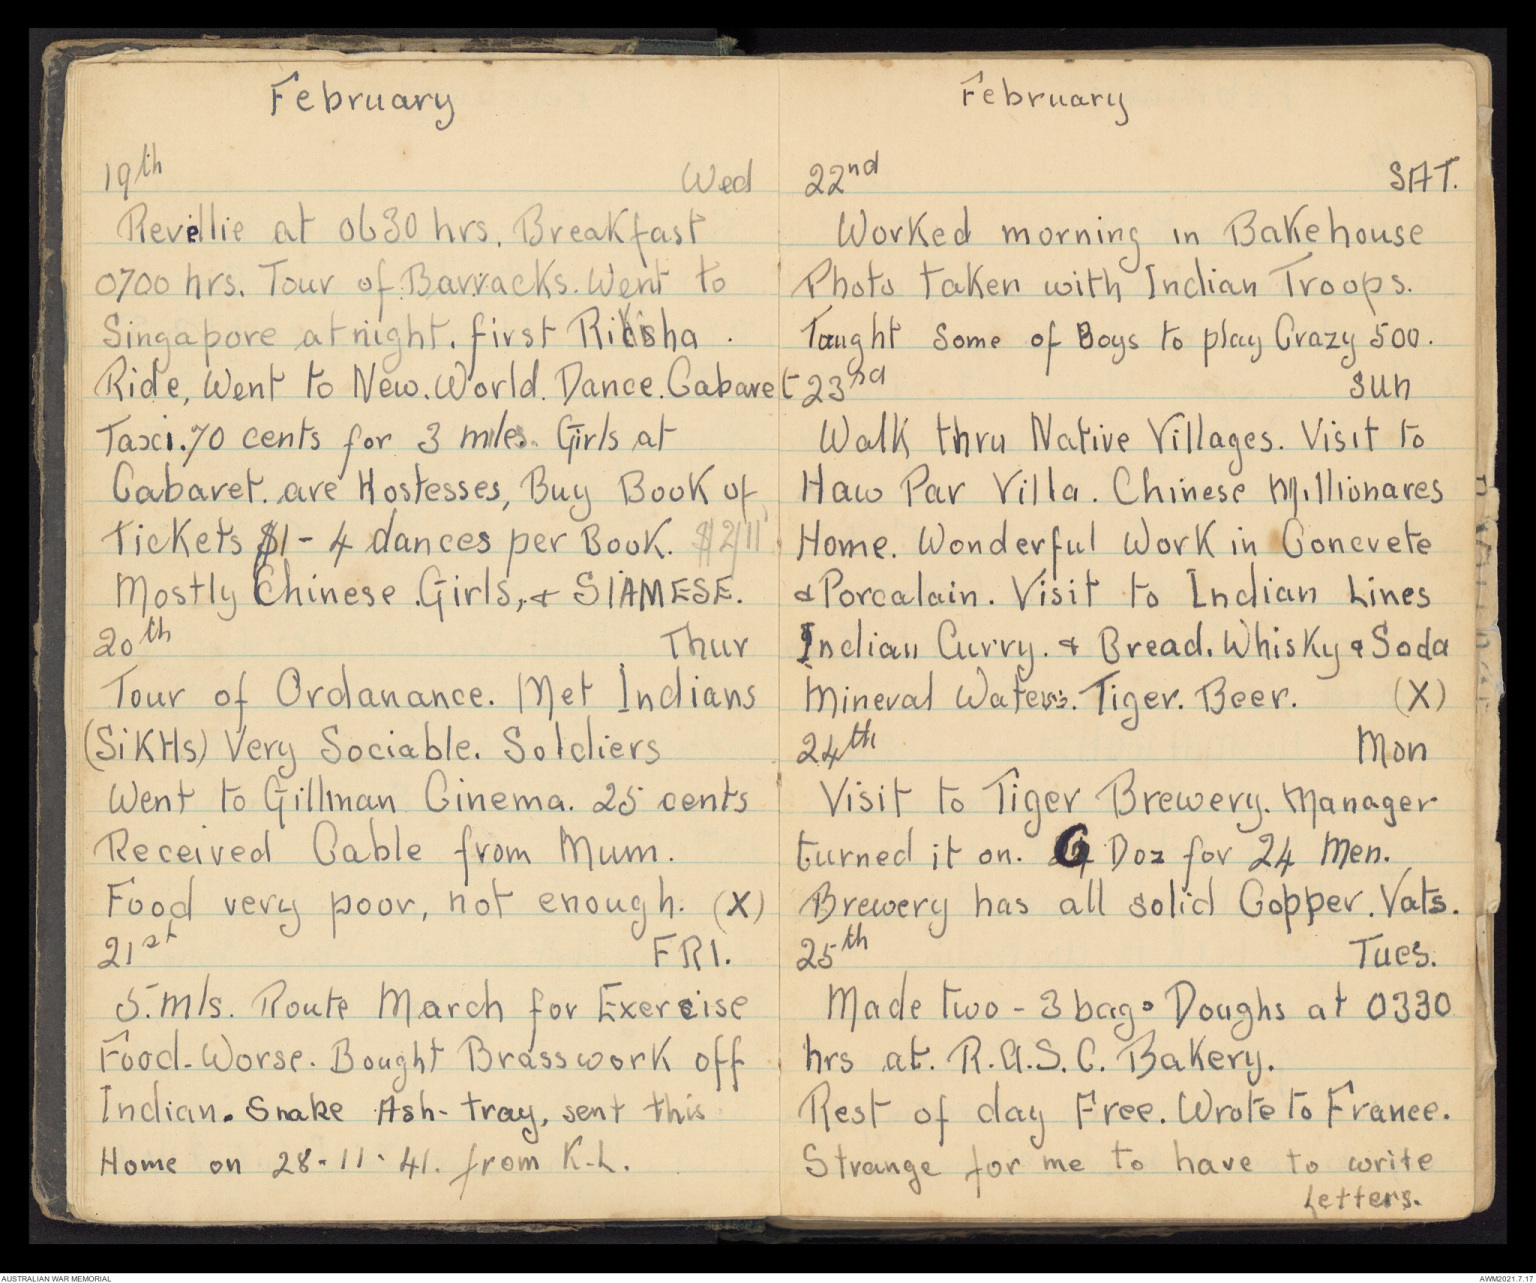 February
19th Wed
Revellie at 0630 hrs, Breakfast
0700 hrs. Tour of Barracks. Went to
Singapore at night. first Ricksha.
Ride, Went to New.World. Dance.Cabaret
Taxi.70 cents for 3 miles. Girls at
Cabaret. are Hostesses, Buy Book of
Tickets $1 - 4 dances per Book. $1 2/11
Mostly Chinese .Girls, & SIAMESE.
20th Thur
Tour of Ordanance. Met Indians
(SiKHs) Very Sociable. Soldiers
Went to Gillman Cinema. 25 cents
Received Cable from Mum.
Food very poor, not enough. (X)
21st FRI.
5.mls. Route March for Exercise
Food.Worse. Bought Brasswork off
Indian. Snake Ash-tray, sent this
Home on 28-11-41. from K.L.
February
22nd SAT.
Worked morning in Bakehouse
Photo taken with Indian Troops.
Taught some of Boys to play Crazy 500.
23rd sun
Walk thru Native Villages. Visit to
Haw Par Villa. Chinese Millionares
Home. Wonderful Work in Concrete
& Porcalain. Visit to Indian Lines
Indian Curry. & Bread. Whisky & Soda
Mineral Waters. Tiger. Beer. (X)
24th Mon
Visit to Tiger Brewery. Manager
turned it on. Doz for 24 Men.
Brewery has all solid Copper. Vats.
25th Tues.
Made two - 3 bags Doughs at 0330
hrs at. R.A.S.C. Bakery.
Rest of day Free. Wrote to France.
Strange for me to have to write
Letters.
AUSTRALIAN WAR MEMORIAL
AWM2021.7.17